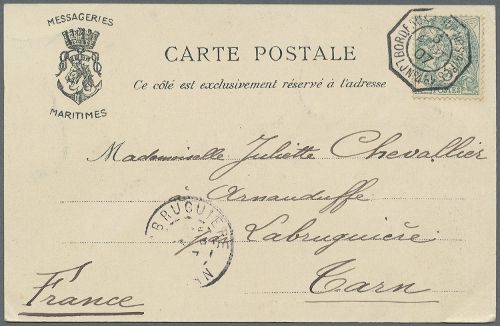 MESSAGERIES
MARITIMES
CARTE POSTALE
Ce côté est exclusivement réservé à l'adresse
BORDEAUX
07
POSTES
Mademoiselle Juliette Chevallier
Arnauduffe
par Labruguière
Tarn
France
BRUGUIÈRE